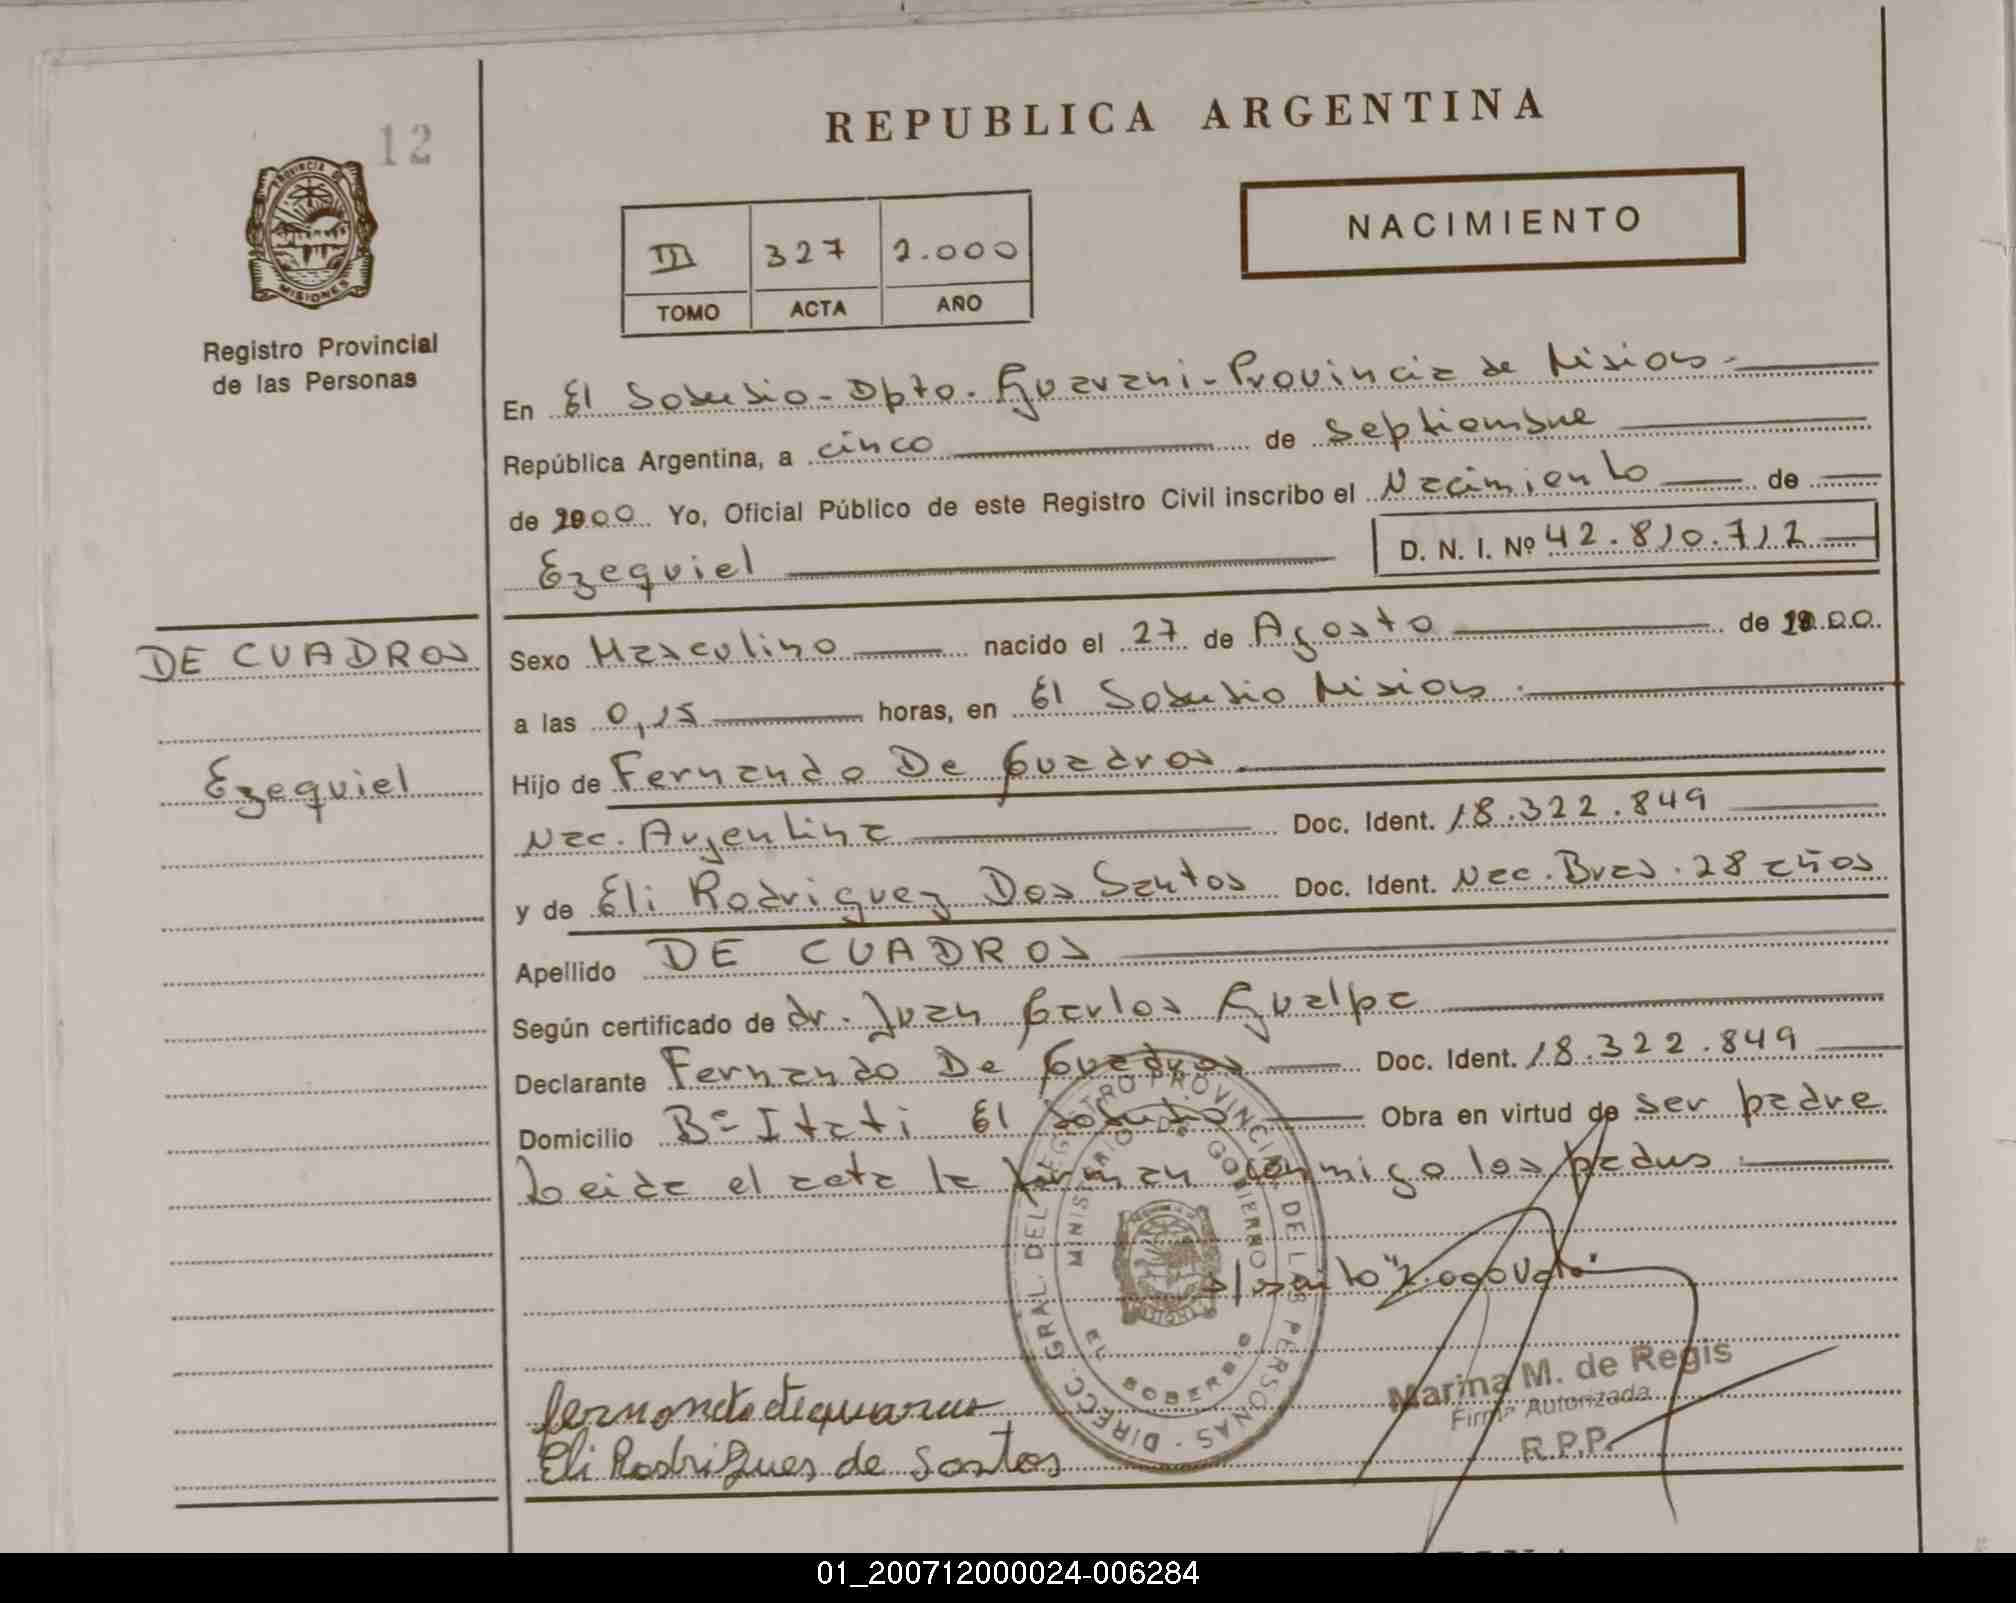 12
REPUBLICA ARGENTINA
PROVINCIA DE
MISIONES
Registro Provincial
de las Personas
NACIMIENTO
III 327 2.000
TOMO ACTA AÑO
En El Soberbio - Dpto. Guarani - Provincia de Misiones -
República Argentina, a cinco de Septiembre
de 2000 Yo, Oficial Público de este Registro Civil inscribo el Nacimiento de
Ezequiel D. N. I. Nº 42.810.712
DE CUADROS
Ezequiel
Sexo Masculino nacido el 27 de Agosto de 2000
a las 0,15 horas, en El Soberbio Misiones.
Hijo de Fernando De Cuadros
Nac. Argentina Doc. Ident. 18.322.849
y de Eli Rodriguez Dos Santos Doc. Ident. Nac. Bras. 28 años
Apellido DE CUADROS
Según certificado de dr. Juan Carlos Gualpa
Declarante Fernando De Cuadros Doc. Ident. 18.322.849
Domicilio Bº Itati El Soberbio Obra en virtud de ser padre
Leida el acta la firman conmigo los padres.
"2.000 Vale"
DIRECC. GRAL. DEL REGISTRO PROVINCIAL DE LAS PERSONAS
MINISTERIO DE GOBIERNO
EL SOBERBIO
Marina M. de Regis
Firma Autorizada
R.P.P.
Eli Rodrigues de Santos
01_200712000024-006284